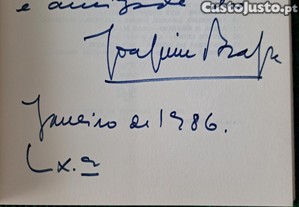 CustoJusto.pt
e amizade
Joaquim
Janeiro de 1986.
Lx.a